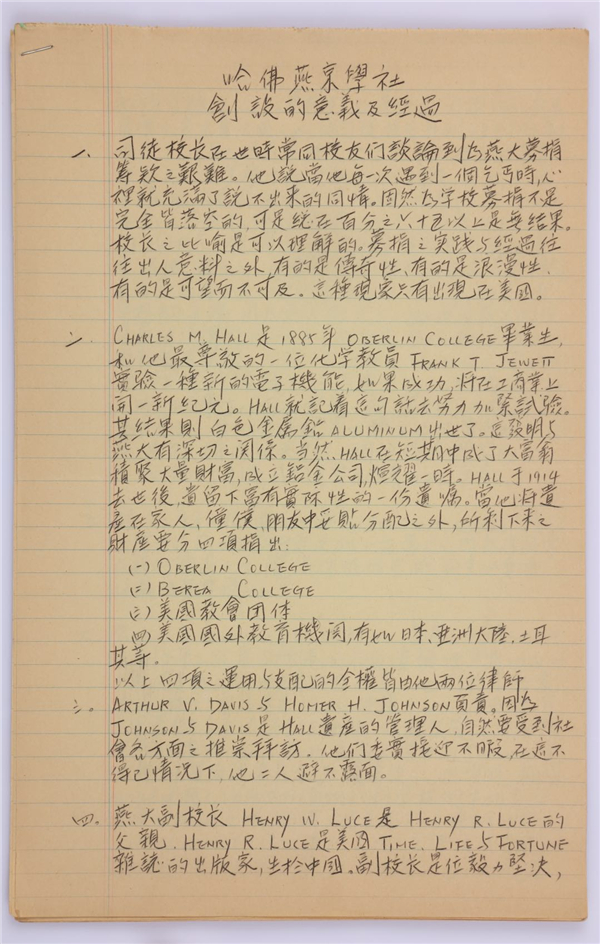 哈佛燕京學社
創設的意義及經過
一、司徒校长在世時常同校友们談論到为燕大募捐
筹款之艰難。他說當他每一次遇到一個乞丐時,心
裡就充滿了説不出來的同情。固然为学校募捐不是
完全皆落空的,可是総在百分之六十五以上是無结果。
校长之比喻是可以理解的。募捐之实践与經過往
往出人意料之外,有的是傳奇性、有的是浪漫性、
有的是可望而不可及。這種現象只有出現在美國。
二、CHARLES M. HALL 是 1885年 OBERLIN COLLEGE 畢業生,
和他最尊敬的一位化学教員 FRANK T. JEWETT
實驗一種新的電子機能,如果成功,將在工商業上
開一新纪元。HALL 就記着這句話去努力加緊試驗。
其结果則白色金属鋁 ALUMINUM 出世了。這發明与
燕大有深切之関係。当然 HALL 在短期中成了大富翁
積聚大量財富,成立鋁金公司,煊耀一時。HALL 于1914
去世後,遺留下富有實际性的一份遺嘱。當他將遺
產在家人,僮僕,朋友中妥貼分配之外,所剩下來之
財產要分四項捐出:
(一) OBERLIN COLLEGE
(二) BEREA COLLEGE
(三) 美國教會団体
(四) 美國國外教育機関,有如日本、亞洲大陸、土耳
其等。
以上四項之運用与支配的全權皆由他兩位律師
三、ARTHUR V. DAVIS 与 HOMER H. JOHNSON 負責。因为
JOHNSON 与 DAVIS 是 HALL 遺產的管理人,自然要受到社
會各方面之推崇拜訪。他们委實接迎不暇,在這不
得已情况下,他二人避不露面。
四。燕大副校长 HENRY W. LUCE 是 HENRY R. LUCE 的
父親。HENRY R. LUCE 是美國 TIME. LIFE 与 FORTUNE
雜誌的出版家,生於中國。副校长是位毅力堅決,